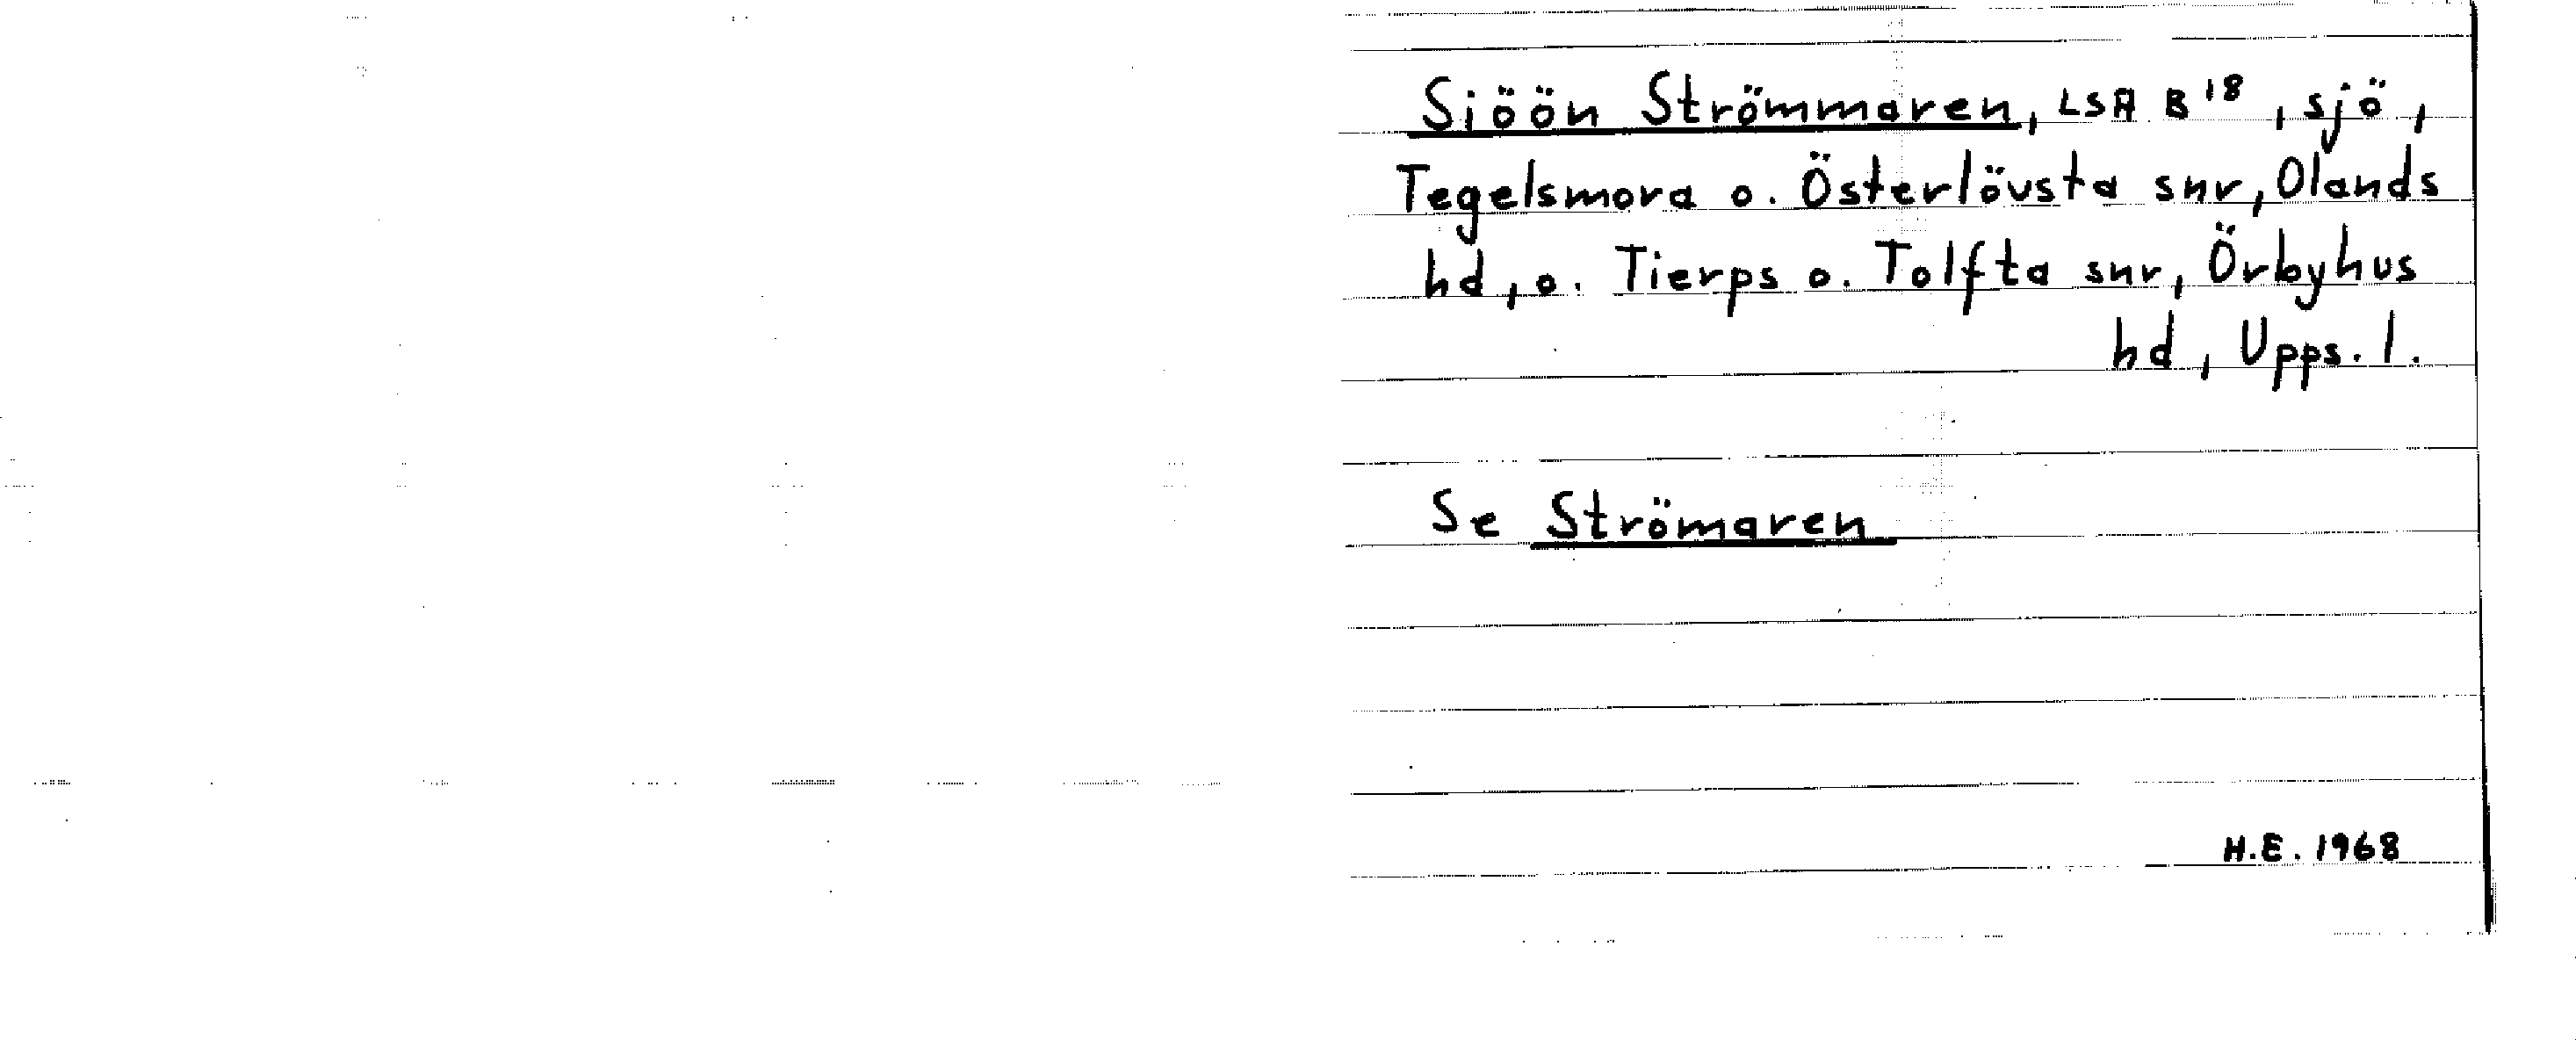 Siöön Strömmaren, LSA B¹⁸, sjö,
Tegelsmora o. Österlövsta snr, Olands
hd, o. Tierps o. Tolfta snr, Örbyhus
hd, Upps. l.
Se Strömaren
H.E. 1968